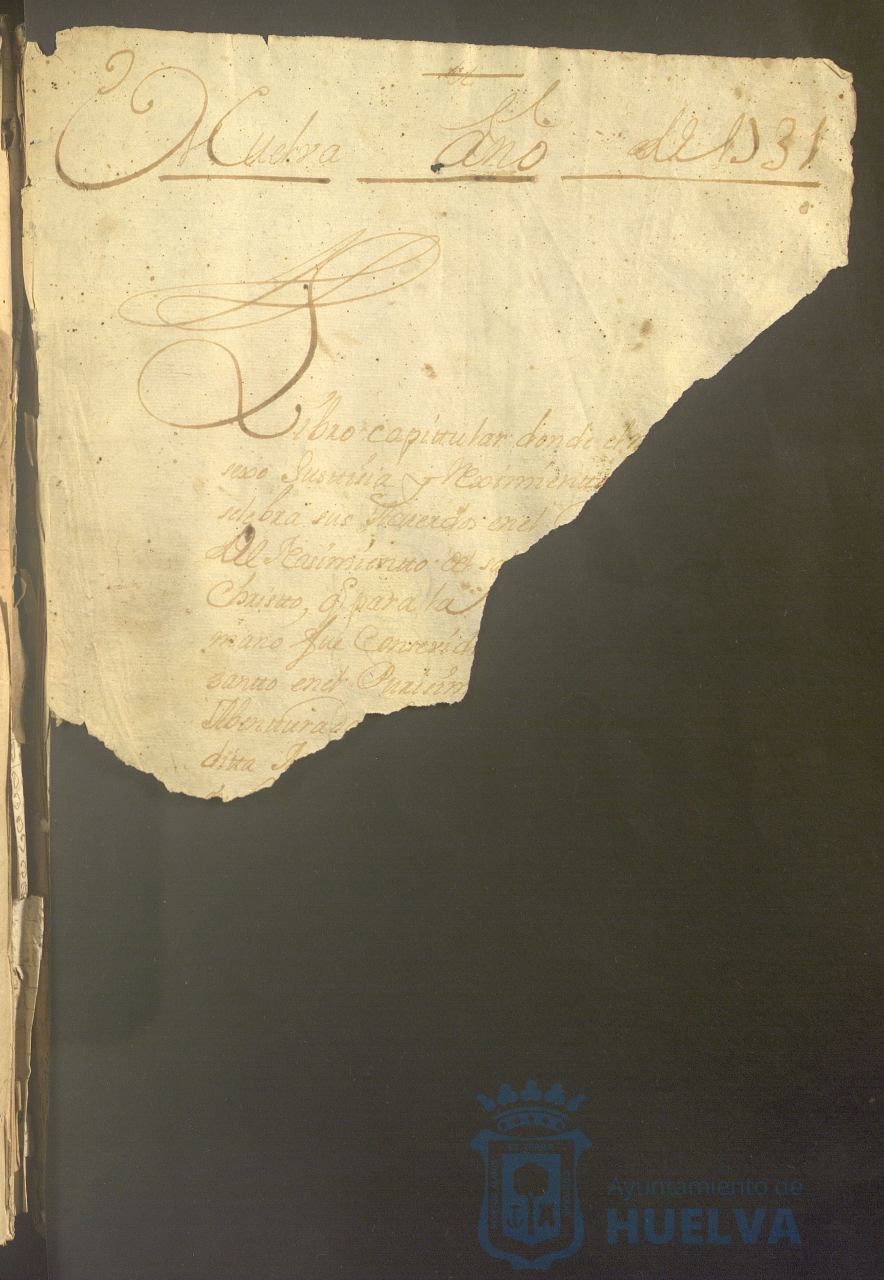 Huelva Año de 1731
Libro capitular donde el
sexo Justisia y Reximiento
selebra sus Acuerdos en el
del Nasimiento de
Christo, q para la
mano fue Consevid
santto en el Purisim
Abentturada
ditta
Ayuntamiento de
HUELVA